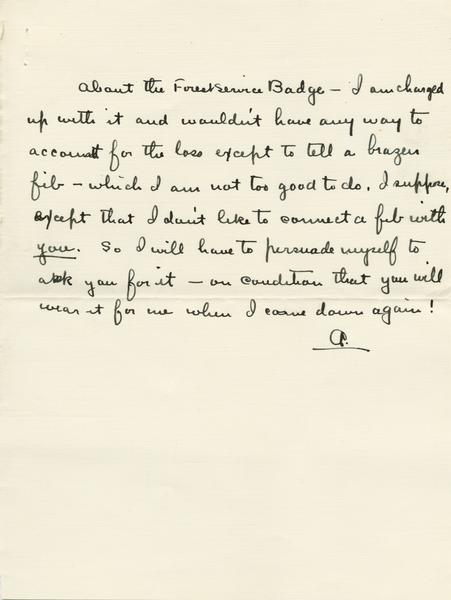 About the Forest Service Badge – I am charged
up with it and wouldn't have any way to
account for the loss except to tell a brazen
fib – which I am not too good to do, I suppose,
except that I don't like to connect a fib with
you. So I will have to persuade myself to
ask you for it – on condition that you will
wear it for me when I come down again!